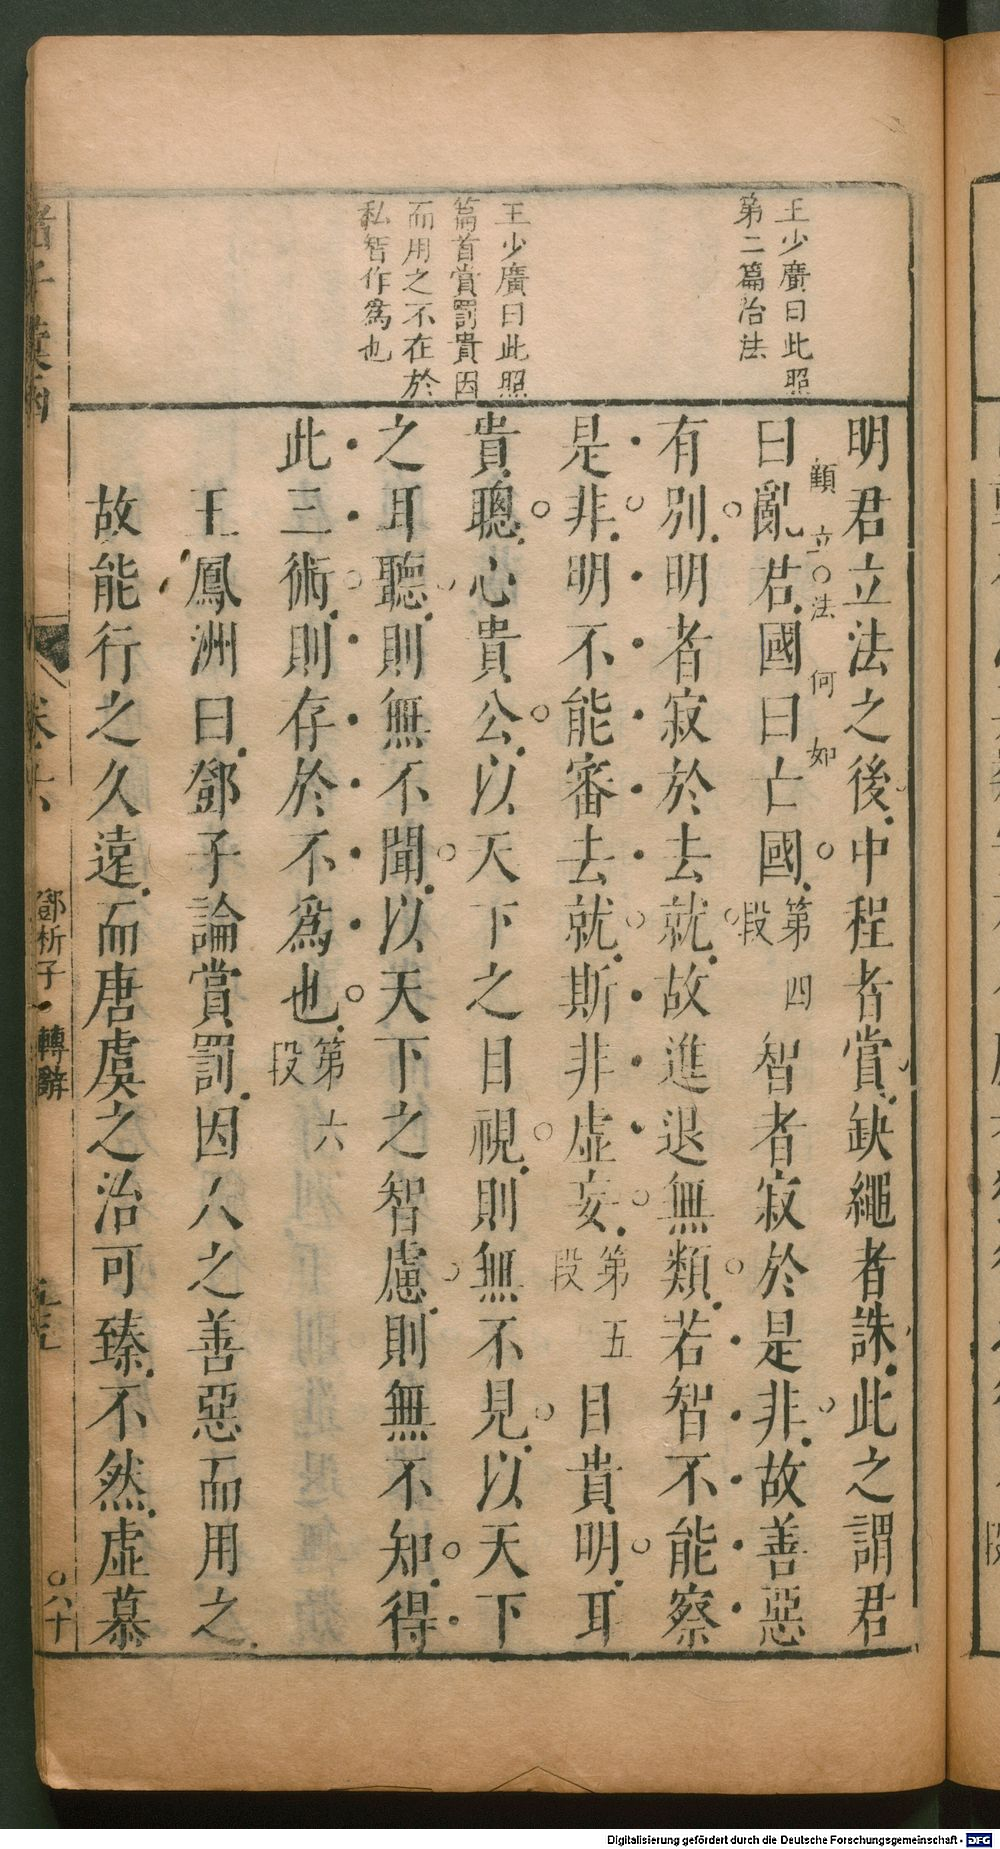 王少廣曰此照
第二篇治法
王少廣曰此照
篇首賞罰貴因
而用之不在於
私智作爲也
明君立法之後中程者賞缺繩者誅此之謂君
顧立法何如
曰亂君國曰亡國第四段智者寂於是非故善惡
有別明者寂於去就故進退無類若智不能察
是非明不能審去就斯非虛妄第五段目貴明耳
貴聰心貴公以天下之目視則無不見以天下
之耳聽則無不聞以天下之智慮則無不知得
此三術則存於不爲也第六段
王鳳洲曰鄧子論賞罰因人之善惡而用之
故能行之久遠而唐虞之治可臻不然虛慕
諸子彙函
卷六
鄧析子 轉辭
八十
Digitalisierung gefördert durch die Deutsche Forschungsgemeinschaft - DFG